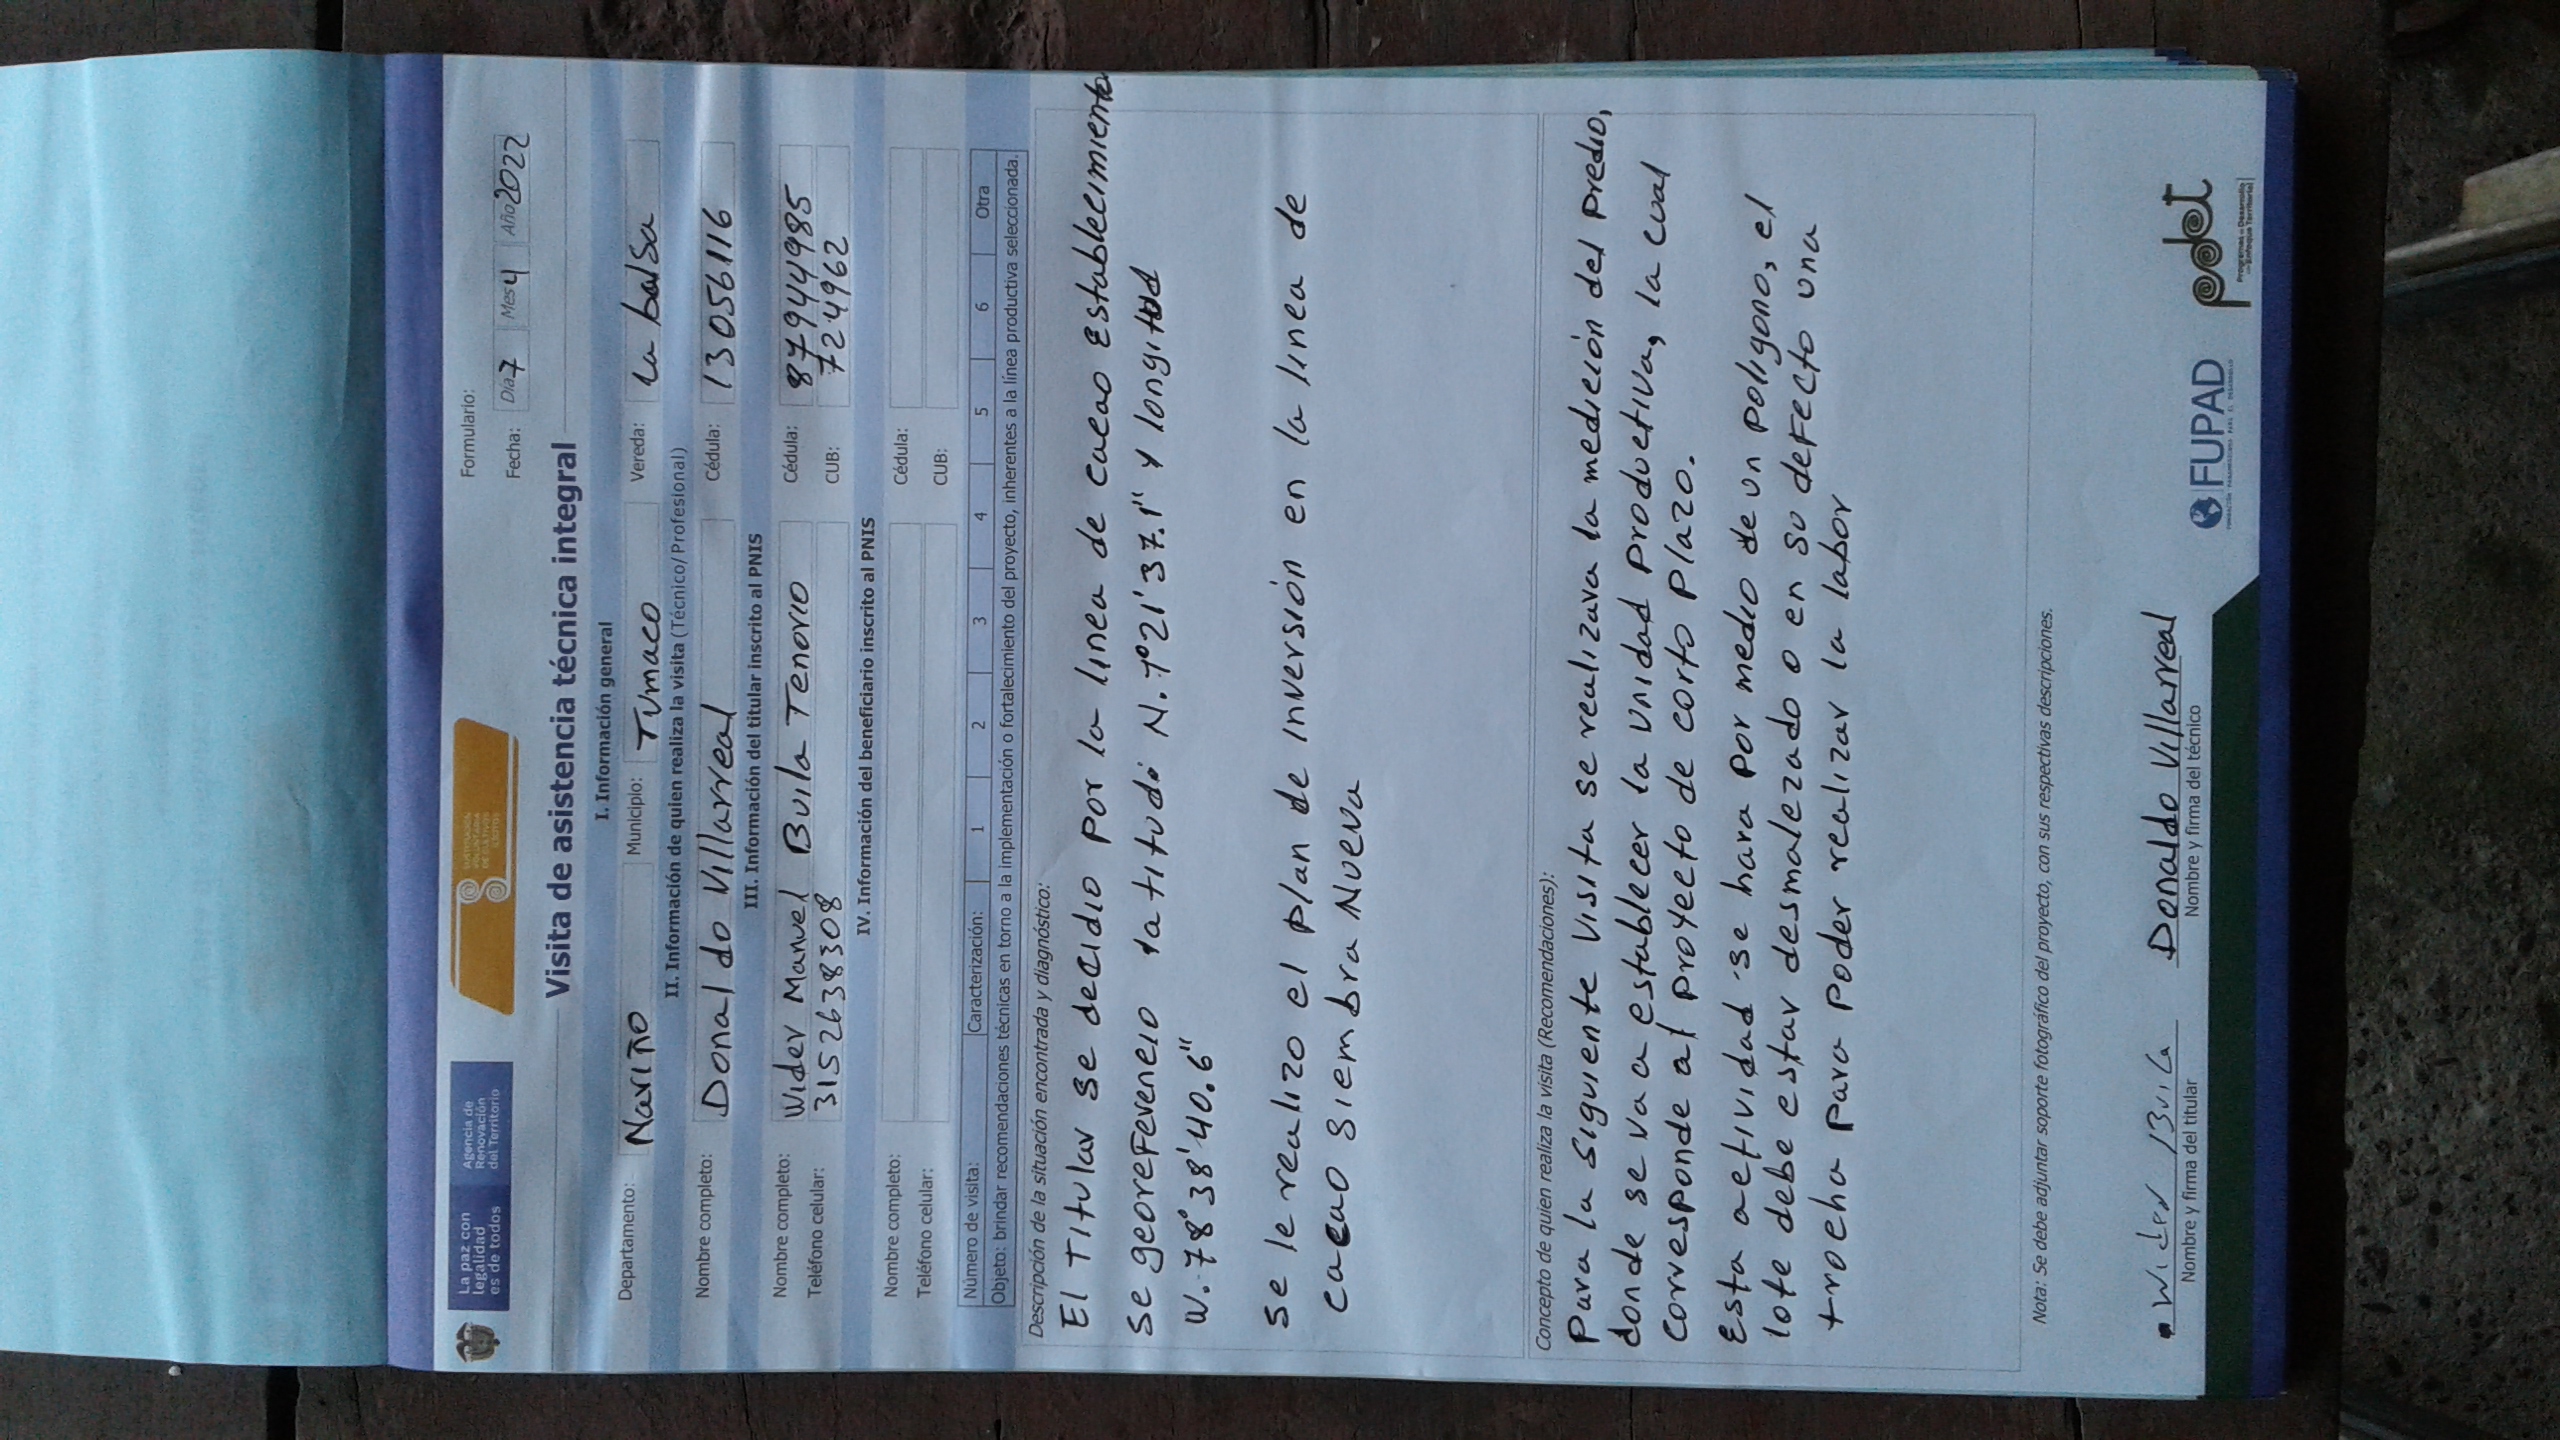 La paz con
legalidad
es de todos
Agencia de
Renovación
del Territorio
SUSTITUCIÓN
VOLUNTARIA
DE CULTIVOS
ILÍCITOS
Formulario:
Fecha: Día 7 Mes 4 Año 2022
Visita de asistencia técnica integral
I. Información general
Departamento: Nariño Municipio: Tumaco Vereda: La balsa
II. Información de quien realiza la visita (Técnico/Profesional)
Nombre completo: Donaldo Villarreal Cédula: 13056116
III. Información del titular inscrito al PNIS
Nombre completo: Wider Manuel Buila Tenorio Cédula: 87944985
Teléfono celular: 3152638308 CUB: 724962
IV. Información del beneficiario inscrito al PNIS
Nombre completo: Cédula:
Teléfono celular: CUB:
Número de visita: Caracterización: 1 2 3 4 5 6 Otra
Objeto: brindar recomendaciones técnicas en torno a la implementación o fortalecimiento del proyecto, inherentes a la línea productiva seleccionada.
Descripción de la situación encontrada y diagnóstico:
El Titular se decidio por la linea de cacao Establecimiento
Se georeferencio latitud: N. 1°21'37.1" y longitud
W. 78°38'40.6"
Se le realizo el plan de inversión en la linea de
cacao Siembra Nueva
Concepto de quien realiza la visita (Recomendaciones):
Para la siguiente visita se realizara la medición del predio,
donde se va a establecer la unidad productiva, la cual
corresponde al proyecto de corto plazo.
Esta actividad se hara por medio de un poligono, el
lote debe estar desmalezado o en su defecto una
trocha para poder realizar la labor
Nota: Se debe adjuntar soporte fotográfico del proyecto, con sus respectivas descripciones.
Wider Buila
Donaldo Villarreal
Nombre y firma del titular
Nombre y firma del técnico
FUPAD
FUNDACIÓN PANAMERICANA PARA EL DESARROLLO
pdet
Programas de Desarrollo
con Enfoque Territorial